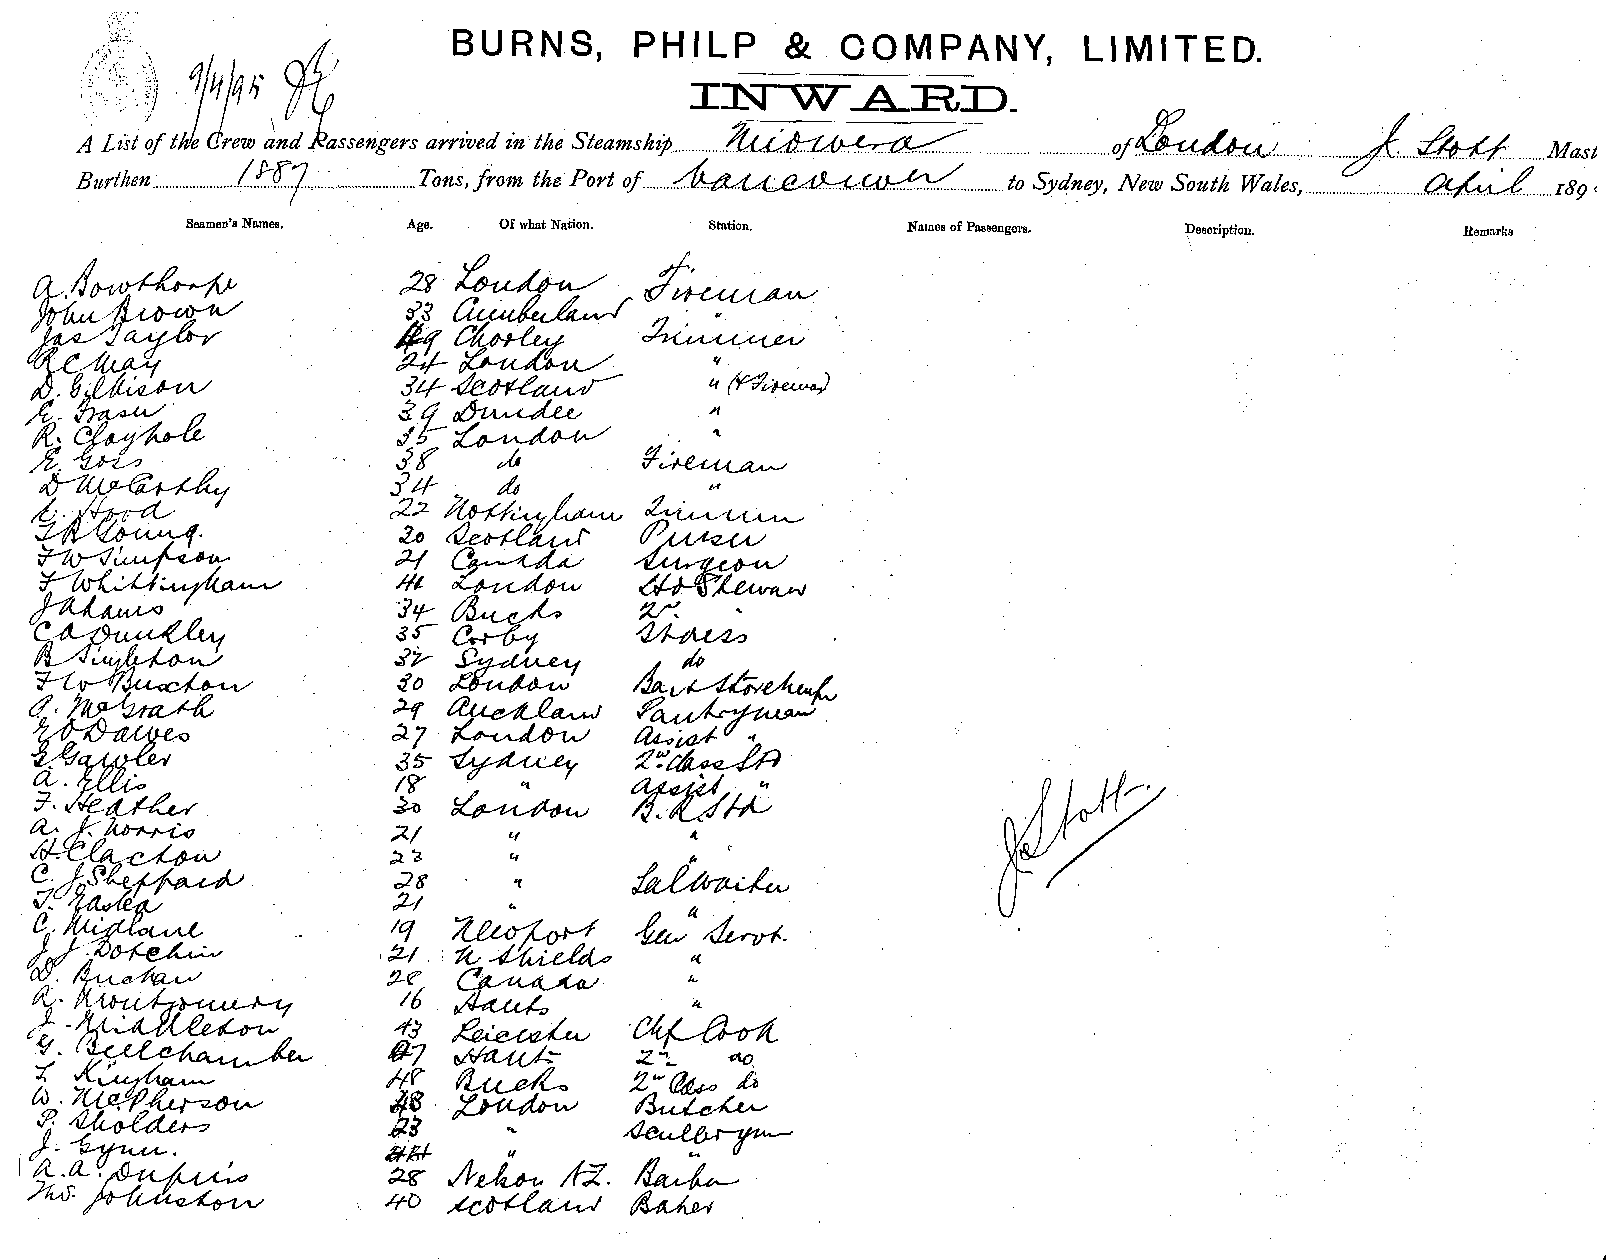 BURNS, PHILP & COMPANY, LIMITED.
9/4/95
INWARD.
A List of the Crew and Passengers arrived in the Steamship Miowera of London J. Stott Mast
Burthen 1887 Tons, from the Port of Vancouver to Sydney, New South Wales, April 189
Seamen's Names. Age. Of what Nation. Station. Names of Passengers. Description. Remarks
A. Bowthorpe 28 London Fireman
John Brown 33 Cumberland "
Jas Taylor 49 Chorley Trimmer
R C May 24 London "
D. Gilbison 34 Scotland " (& Fireman)
E. Fraser 39 Dundee "
R. Clayhole 35 London "
E. Goss 38 do Fireman
D McCarthy 34 do "
Hood 22 Nottingham Trimmer
Young. 30 Scotland Purser
F W Simpson 21 Canada Surgeon
F Whittingham 41 London Hd Steward
J Adams 34 Bucks 2nd "
C A Dunkley 35 Corby Stdess
B Singleton 32 Sydney do
F W Buxton 30 London Bar & Storekeepr
A. McGrath 29 Auckland Pantryman
E O Dawes 27 London Assist "
G Gawler 35 Sydney 2nd Class Std
A. Ellis 18 " Assist "
F. Heather 30 London B. R Std
A. J. Norris 21 " "
H. Clacton 23 " "
C. J Sheppard 28 " Sal Waiter
T. 21 " "
C. Midlane 19 Newport Gen Servt.
J. J. Dotchin 21 N Shields "
D. Buchan 28 Canada "
A. Montgomery 16 Hants "
J. Middleton 43 Leicester Chf Cook
G. Bellchamber 27 Hants 2nd do
Kingham 48 Bucks 2nd Class do
W. McPherson 48 London Butcher
P. Sholders 23 " Sculleryman
J. Gynn. " "
A. A. Dupuis 28 Nelson N Z. Barber
Thos. Johnston 40 Scotland Baker
J. Stott